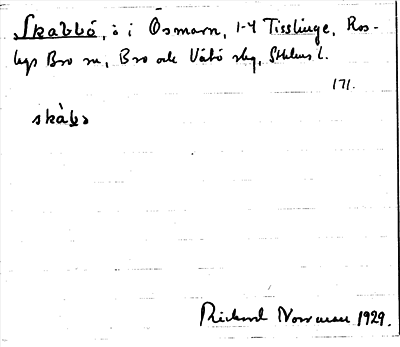 Skabbö, ö i Osmaren, 1-4 Tisslinge, Ros-
lags Bro sn, Bro och Vätö skg, Sthlms l.
171.
skàbɜ
Rickard Norman 1929.